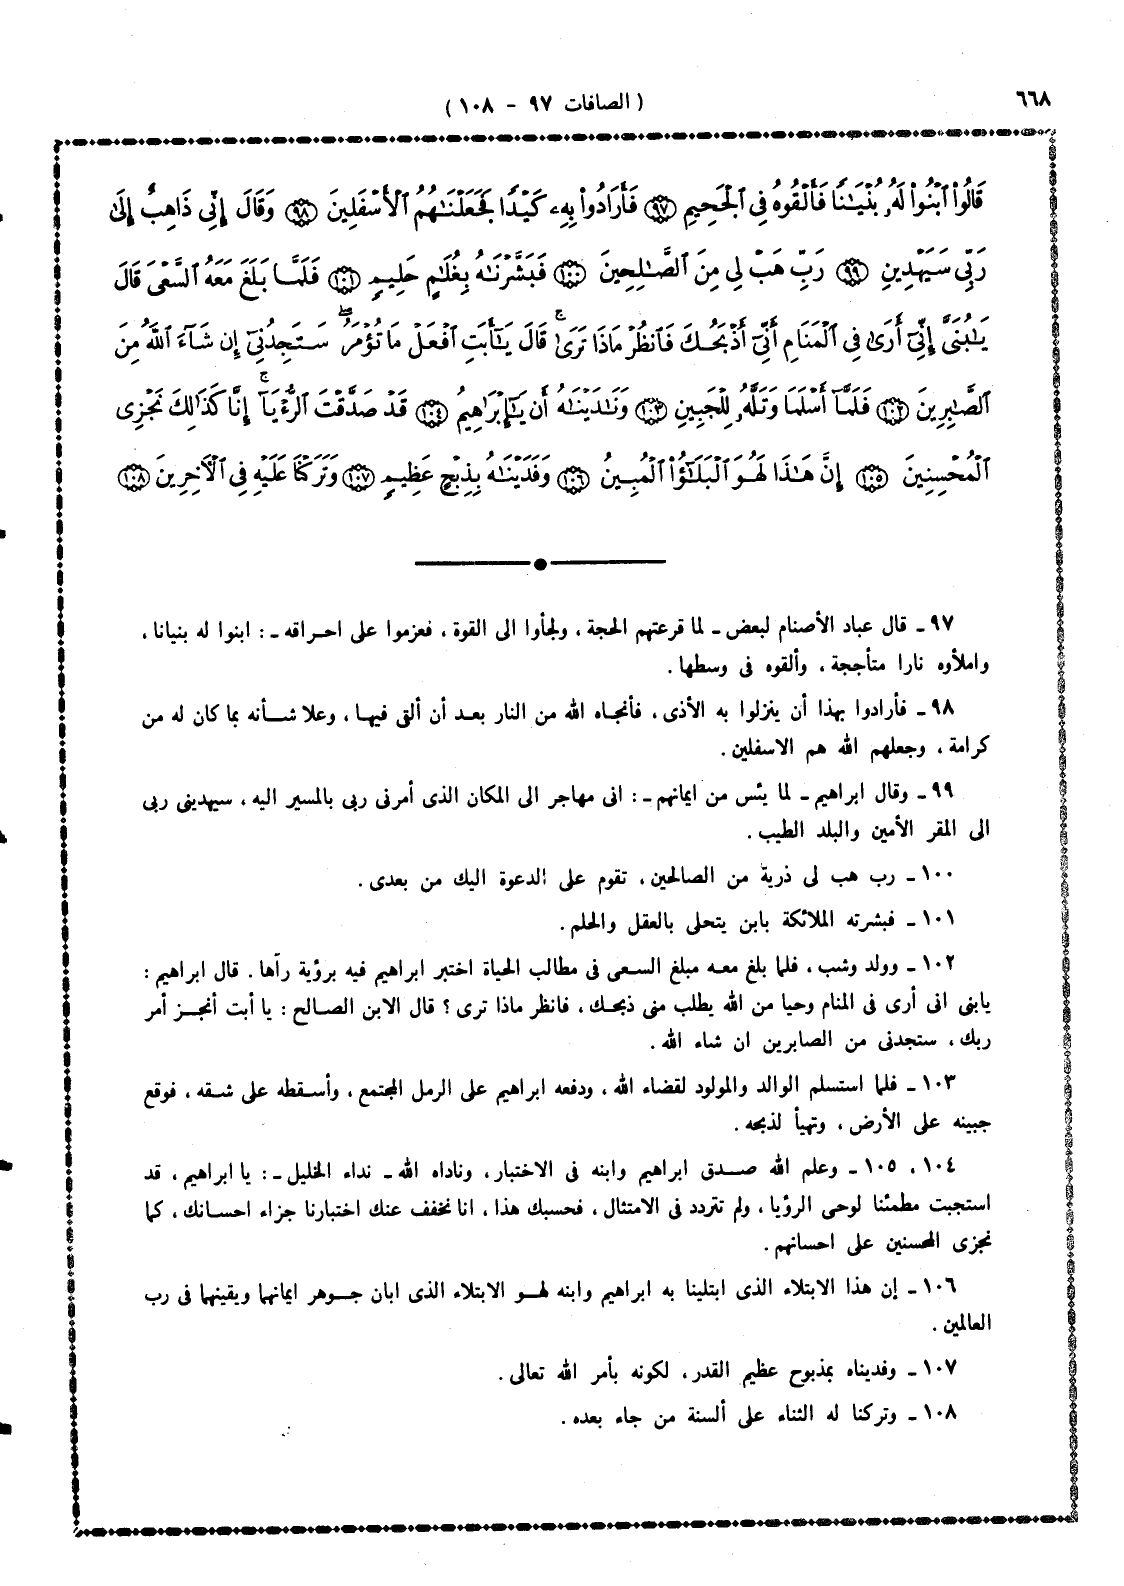 ٦٦٨
( الصافات ٩٧ - ١٠٨ )
قَالُوا۟ ٱبْنُوا۟ لَهُۥ بُنْيَـٰنًا فَأَلْقُوهُ فِى ٱلْجَحِيمِ ۝٩٧ فَأَرَادُوا۟ بِهِۦ كَيْدًا فَجَعَلْنَـٰهُمُ ٱلْأَسْفَلِينَ ۝٩٨ وَقَالَ إِنِّى ذَاهِبٌ إِلَىٰ
رَبِّى سَيَهْدِينِ ۝٩٩ رَبِّ هَبْ لِى مِنَ ٱلصَّـٰلِحِينَ ۝١٠٠ فَبَشَّرْنَـٰهُ بِغُلَـٰمٍ حَلِيمٍ ۝١٠١ فَلَمَّا بَلَغَ مَعَهُ ٱلسَّعْىَ قَالَ
يَـٰبُنَىَّ إِنِّىٓ أَرَىٰ فِى ٱلْمَنَامِ أَنِّىٓ أَذْبَحُكَ فَٱنظُرْ مَاذَا تَرَىٰ ۚ قَالَ يَـٰٓأَبَتِ ٱفْعَلْ مَا تُؤْمَرُ ۖ سَتَجِدُنِىٓ إِن شَآءَ ٱللَّهُ مِنَ
ٱلصَّـٰبِرِينَ ۝١٠٢ فَلَمَّآ أَسْلَمَا وَتَلَّهُۥ لِلْجَبِينِ ۝١٠٣ وَنَـٰدَيْنَـٰهُ أَن يَـٰٓإِبْرَٰهِيمُ ۝١٠٤ قَدْ صَدَّقْتَ ٱلرُّءْيَآ ۚ إِنَّا كَذَٰلِكَ نَجْزِى
ٱلْمُحْسِنِينَ ۝١٠٥ إِنَّ هَـٰذَا لَهُوَ ٱلْبَلَـٰٓؤُا۟ ٱلْمُبِينُ ۝١٠٦ وَفَدَيْنَـٰهُ بِذِبْحٍ عَظِيمٍ ۝١٠٧ وَتَرَكْنَا عَلَيْهِ فِى ٱلْـَٔاخِرِينَ ۝١٠٨
٩٧ ـ قال عباد الأصنام لبعض ـ لما قرعتهم الحجة ، ولجأوا الى القوة ، فعزموا على احراقه ـ : ابنوا له بنيانا ،
واملأوه نارا متأججة ، وألقوه فى وسطها .
٩٨ ـ فأرادوا بهذا أن ينزلوا به الأذى ، فأنجاه الله من النار بعد أن ألقى فيها ، وعلا شأنه بما كان له من
كرامة ، وجعلهم الله هم الاسفلين .
٩٩ ـ وقال ابراهيم ـ لما يئس من ايمانهم ـ : انى مهاجر الى المكان الذى أمرنى ربى بالمسير اليه ، سيهدينى ربى
الى المقر الأمين والبلد الطيب .
١٠٠ ـ رب هب لى ذرية من الصالحين ، تقوم على الدعوة اليك من بعدى .
١٠١ ـ فبشرته الملائكة بابن يتحلى بالعقل والحلم .
١٠٢ ـ وولد وشب ، فلما بلغ معه مبلغ السعى فى مطالب الحياة اختبر ابراهيم فيه برؤية رآها . قال ابراهيم :
يابنى انى أرى فى المنام وحيا من الله يطلب منى ذبحك ، فانظر ماذا ترى ؟ قال الابن الصالح : يا أبت أنجز أمر
ربك ، ستجدنى من الصابرين ان شاء الله .
١٠٣ ـ فلما استسلم الوالد والمولود لقضاء الله ، ودفعه ابراهيم على الرمل المجتمع ، وأسقطه على شقه ، فوقع
جبينه على الأرض ، وتهيأ لذبحه .
١٠٤ ، ١٠٥ ـ وعلم الله صدق ابراهيم وابنه فى الاختبار ، وناداه الله ـ نداء الخليل ـ : يا ابراهيم ، قد
استجبت مطمئنا لوحى الرؤيا ، ولم تتردد فى الامتثال ، فحسبك هذا ، انا نخفف عنك اختبارنا جزاء احسانك ، كما
نجزى المحسنين على احسانهم .
١٠٦ ـ إن هذا الابتلاء الذى ابتلينا به ابراهيم وابنه لهو الابتلاء الذى ابان جوهر ايمانهما ويقينهما فى رب
العالمين .
١٠٧ ـ وفديناه بمذبوح عظيم القدر ، لكونه بأمر الله تعالى .
١٠٨ ـ وتركنا له الثناء على ألسنة من جاء بعده .